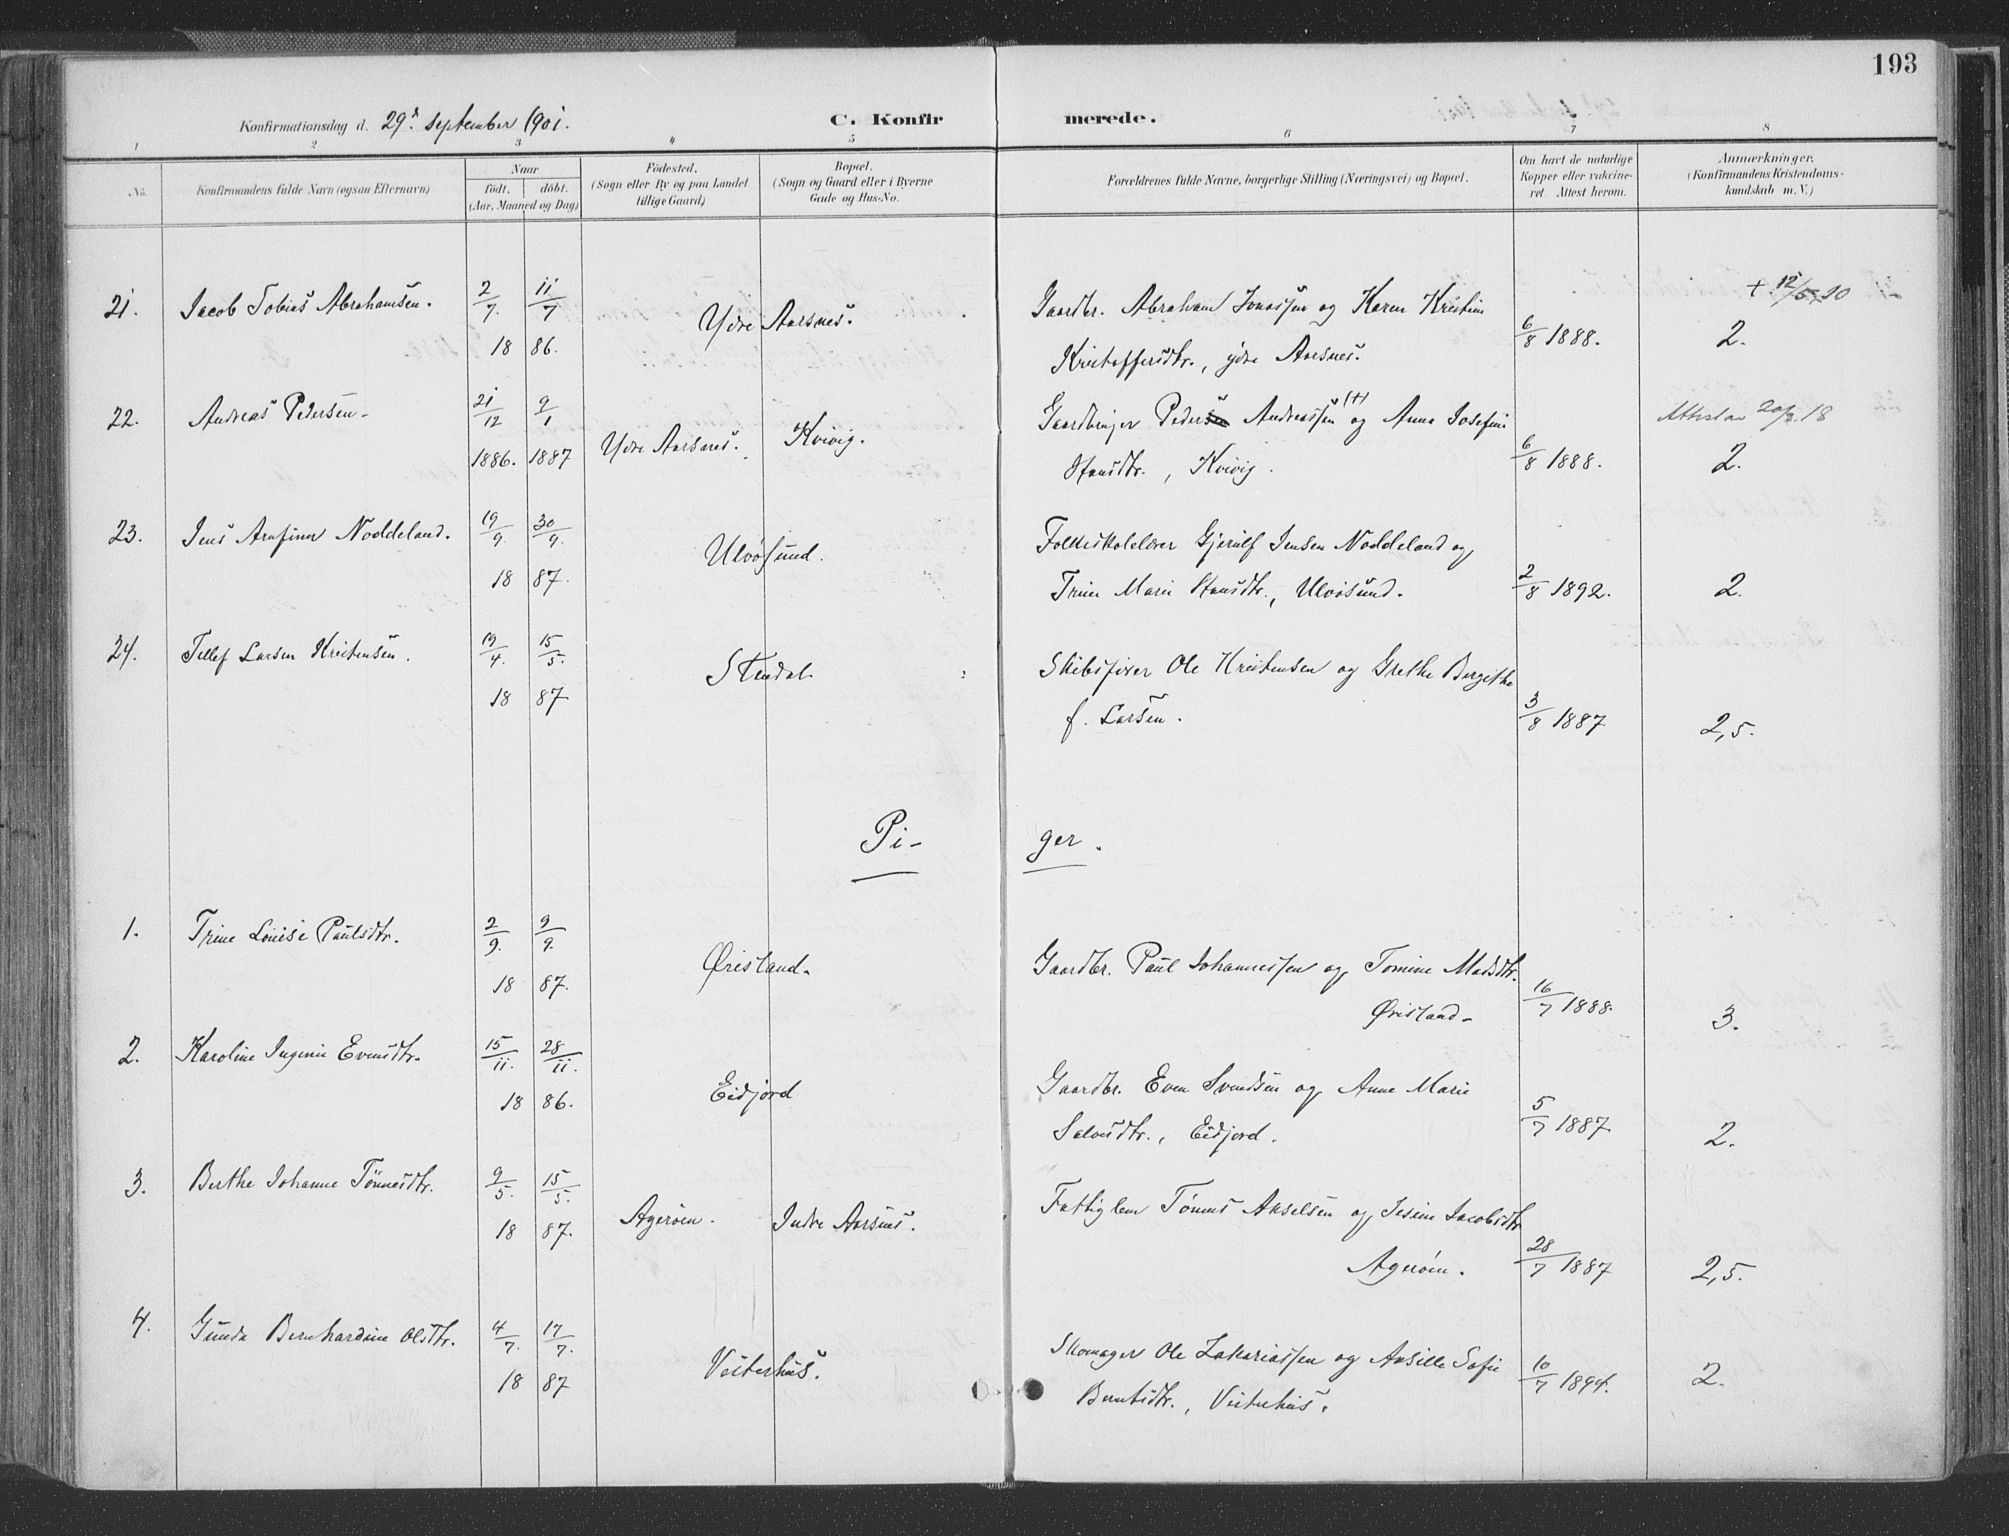 193
Konfirmationsdag d. 29. september 1901.
C. Konfir merede.
1 2 3 4 5 6 7 8
No. Konfirmandens fulde Navn (ogsaa Efternavn)
Naar
født. døbt.
(Aar, Maaned og Dag)
Fødested.
(Sogn eller By og paa Landet
tillige Gaard)
Bopæl.
(Sogn og Gaard eller i Byerne
Gade og Hus-No.
Forældrenes fulde Navne, borgerlige Stilling (Næringsvei) og Bopæl.
Om havt de naturlige
Kopper eller vaccine-
ret. Attest herom.
Anmærkninger.
(Konfirmandens Kristendoms-
kundskab m. V.)
21. Jacob Tobias Abrahamsen. 2/7. 11/7 18 86. Ydre Aarsnes.
Gaardbr. Abraham Jonassen og Karen Kristine
Kristoffersdtr., ydre Aarsnes. 6/8 1888. 2.
22. Andreas Pedersen 21/12 1886. 9/1 1887 Ydre Aarsnes. Kvivig.
Gaardbruger Peder Andreassen (+) og Anna Josefine
Hansdtr., Kvivig. 6/8 1888. Attestar 20/3 18 2.
23. Jens Arnfinn Noddeland. 19/9. 30/9. 18 87. Ulvøsund.
Folkeskolelærer Gjerulf Jensen Noddeland og
Trine Marie Hansdtr., Ulvøsund. 2/8 1892. 2.
24. Tellef Larsen Kristensen. 19/4. 15/5. 18 87. Stendal.
Skibsfører Ole Kristensen og Grethe Bergithe
f. Larsen. 3/8 1887 2,5.
Pi- ger.
1. Trine Louise Paulsdtr. 2/9. 9/9. 18 87. Øresland.
Gaardbr. Paul Johannessen og Tomine Madsdtr.
Øresland. 16/7 1888. 3.
2. Karoline Ingenie Evensdtr. 15/11. 28/11. 18 86. Eidjord
Gaardbr. Even Svendsen og Anne Marie
Salvesdtr., Eidjord. 5/7 1887 2.
3. Berthe Johanne Tønnesdtr. 9/5. 15/5. 18 87. Agerøen. Indre Aarsnes.
Fattiglem Tønnes Akselsen og Jesine Jacobsdtr.
Agerøen. 28/7 1887 2,5.
4. Gunda Bernhardine Olsdtr. 4/7. 17/7. 18 87 Vesterhus.
Skomager Ole Zakariassen og Aasille Sofie
Berntsdtr., Vesterhus. 10/7 1894. 2.